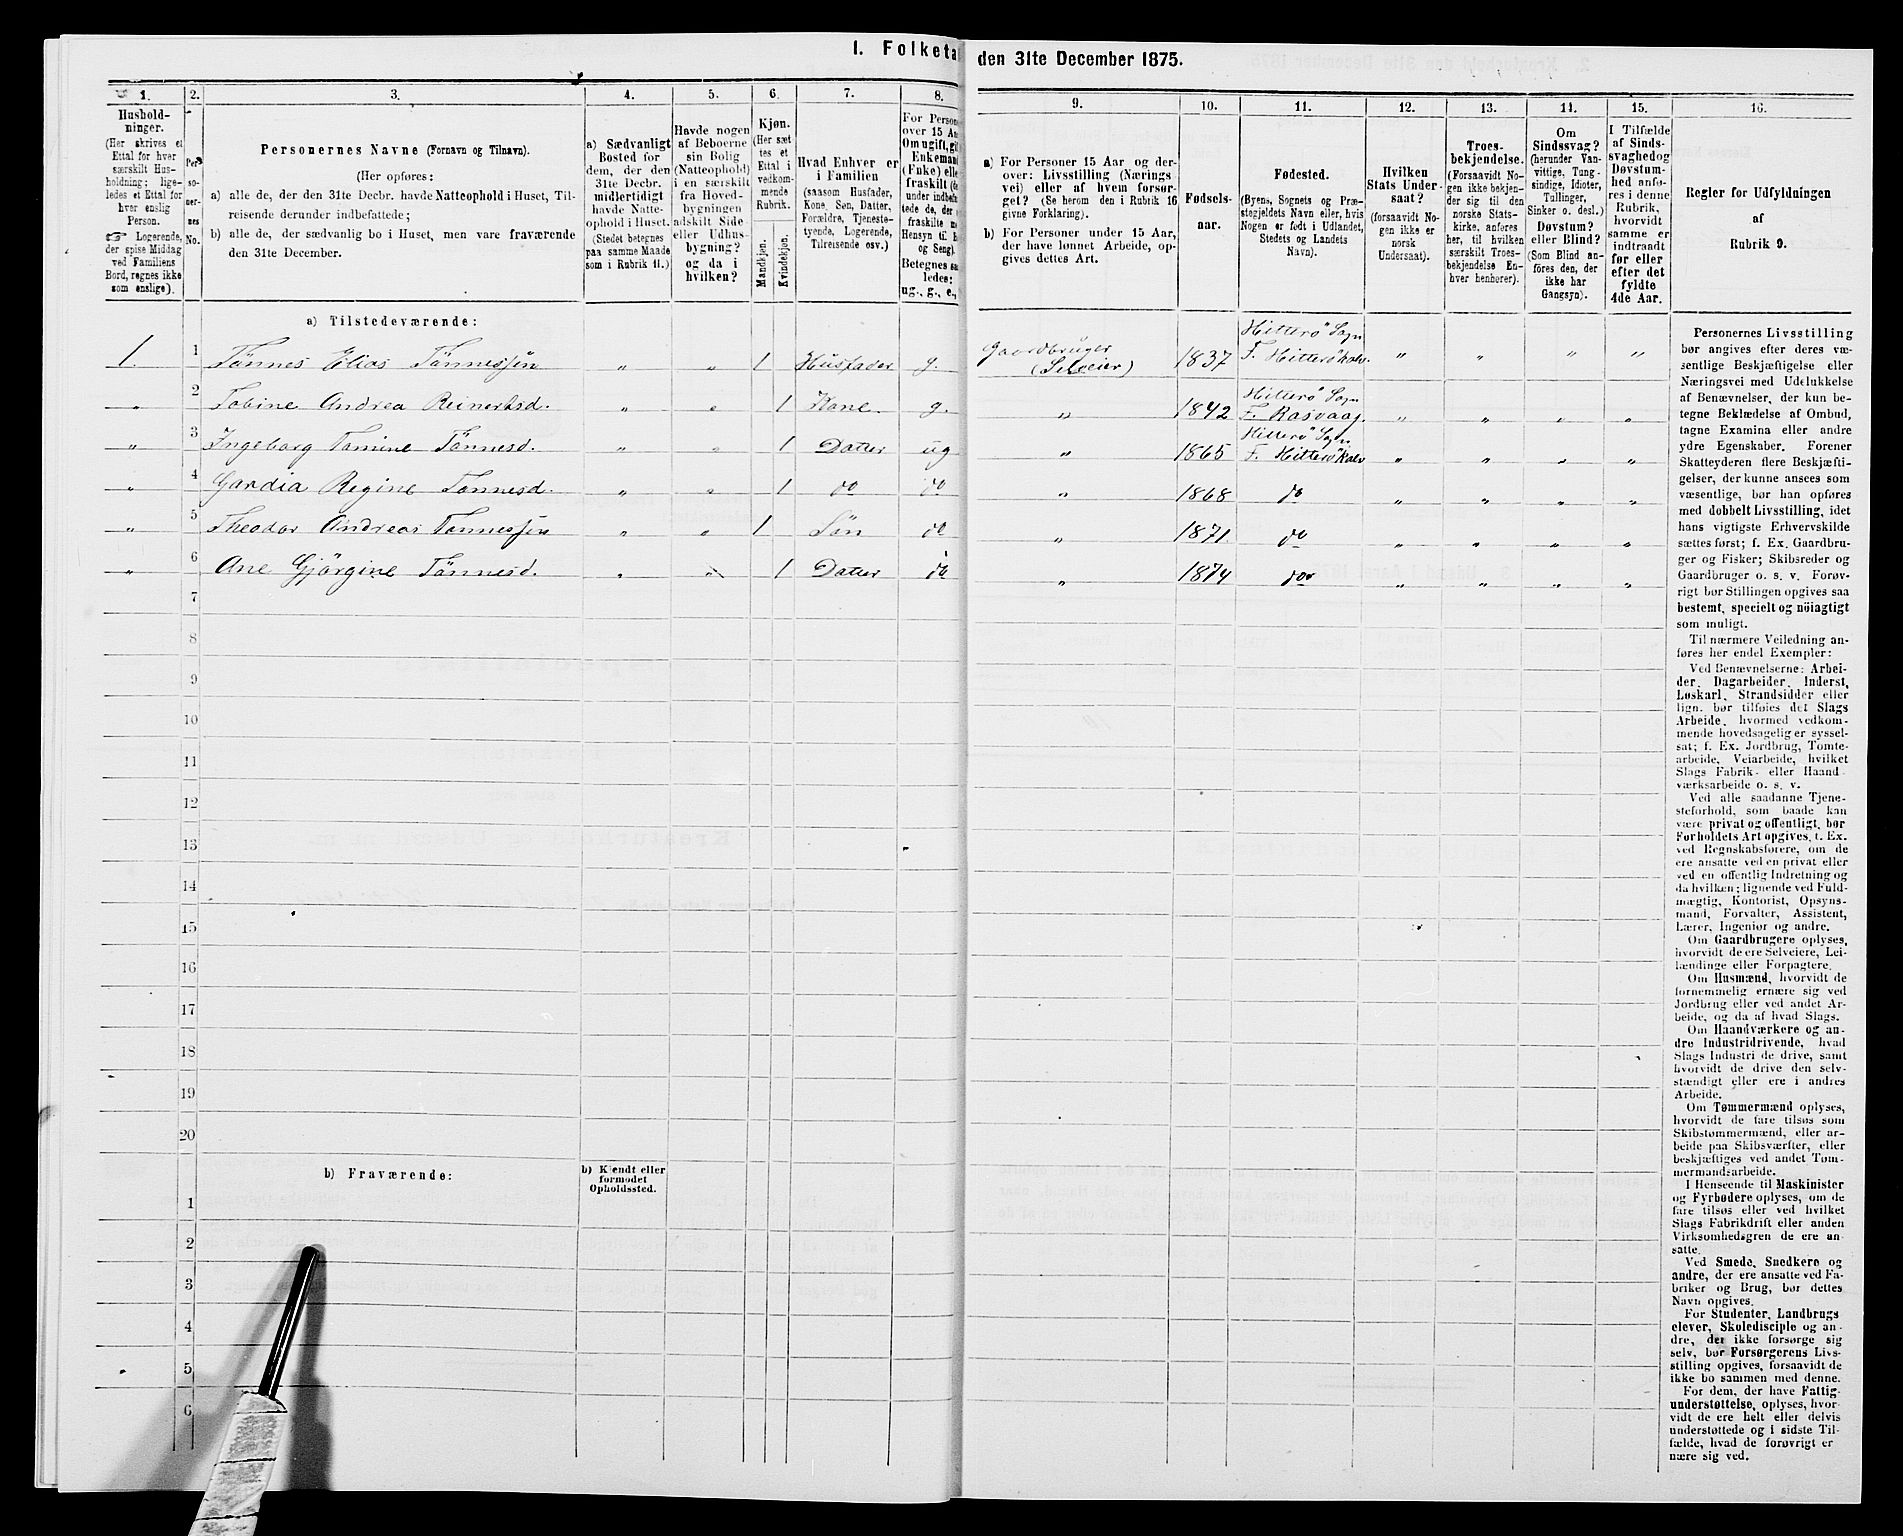 I. Folketa
den 31te December 1875.
1.
2.
3.
4.
5.
6.
7.
8.
9.
10.
11.
12.
13.
14.
15.
16.
Hushold-
ninger.
(Her skrives et
Ettal for hver
særskilt Hus-
holdning; lige-
ledes et Ettal for
hver enslig
Person.
☞ Logerende,
der spise Middag
ved Familiens
Bord, regnes ikke
som enslige).
Per-
so-
ner-
nes
No.
Personernes Navne (Fornavn og Tilnavn).
(Her opføres:
a) alle de, der den 31te Decbr. havde Natteophold i Huset, Til-
reisende derunder indbefattede;
b) alle de, der sædvanlig bo i Huset, men vare fraværende
den 31te December.
a) Sædvanligt
Bosted for
dem, der den
31te Decbr.
midlertidigt
havde Natte-
ophold i Huset.
(Stedet betegnes
paa samme Maade
som i Rubrik 11.)
Havde nogen
af Beboerne
sin Bolig
(Natteophold)
i en særskilt
fra Hoved-
bygningen
adskilt Side-
eller Udhus-
bygning?
og da i
hvilken?
Kjøn.
(Her sæt-
tes et
Ettal i
vedkom-
mende
Rubrik.
Mandkjøn.
Kvindekjøn.
Hvad Enhver er
i Familien
(saasom Husfader,
Kone, Søn, Datter,
Forældre, Tjeneste-
tyende, Logerende,
Tilreisende osv.)
For Person
over 15 Aa
Om ugift, gif
Enkemand
(Enke) elle
fraskilt (de
under indbefat
tede de, der e
fraskilte m
Hensyn til B
og Seng).
Betegnes saa
ledes:
ug., g., e.,
a) For Personer 15 Aar og der-
over: Livsstilling (Nærings-
vei) eller af hvem forsør-
get? (Se herom den i Rubrik 16
givne Forklaring).
b) For Personer under 15 Aar,
der have lønnet Arbeide, op-
gives dettes Art.
Fødsels-
aar.
Fødested.
(Byens, Sognets og Præ-
stegjeldets Navn eller, hvis
Nogen er født i Udlandet,
Stedets og Landets
Navn).
Hvilken
Stats Under-
saat?
(forsaavidt No-
gen ikke er
norsk
Undersaat).
Troes-
bekjendelse.
(Forsaavidt No-
gen ikke bekjen-
der sig til den
norske Stats-
kirke, anføres
her, til hvilken
særskilt Troes-
bekjendelse En-
hver henhører).
Om
Sindssvag?
(herunder Van-
vittige, Tung-
sindige, Idioter,
Tullinger,
Sinker o. desl.)
Døvstum?
eller Blind?
(Som Blind an-
føres den, der
ikke har
Gangsyn).
I Tilfælde
af Sinds-
svaghed og
Døvstum-
hed anfø-
res i denne
Rubrik,
hvorvidt
samme er
indtraadt
før eller
efter det
fyldte
4de Aar.
Regler for Udfyldningen
af
Rubrik 9.
a) Tilstedeværende:
1. 1 Tönnes Elias Tönnessen „ „ 1 Husfader g. Gaardbruger (Selveier) 1837 Hitterö Sogn F. Hitterökalv. „ „ „ „
„ 2 Tobine Andrea Reinertsd. „ „ 1 Kone g. „ 1842 Hitterö Sogn F. Rasvaag. „ „ „ „
„ 3 Ingeborg Tomine Tönnesd. „ „ 1 Datter ug „ 1865 Hitterö Sogn F. Hitterökalv „ „ „ „
„ 4 Regine Tönnesd. „ „ 1 do do „ 1868 do „ „ „ „
„ 5 Theodor Andreas Tönnessen „ „ 1 Sön do „ 1871. do „ „ „ „
„ 6 Ane Gjörgine Tönnesd. „ „ 1 Datter do „ 1874 do „ „ „ „
7
8
9
10
11
12
13
14
15
16
17
18
19
20
b) Fraværende:
b) Kjendt eller
formodet
Opholdssted.
1
2
3
4
5
6
Personernes Livsstilling
bør angives efter deres væ-
sentlige Beskjæftigelse eller
Næringsvei med Udelukkelse
af Benævnelser, der kun be-
tegne Beklædelse af Ombud,
tagne Examina eller andre
ydre Egenskaber. Forener
Skatteyderen flere Beskjæfti-
gelser, der kunne ansees som
væsentlige, bør han opføres
med dobbelt Livsstilling, idet
hans vigtigste Erhvervskilde
sættes først; f. Ex. Gaardbru-
ger og Fisker; Skibsreder og
Gaardbruger o. s. v. Forøv-
rigt bør Stillingen opgives saa
bestemt, specielt og nöiagtigt
som muligt.
Til nærmere Veiledning an-
føres her endel Exempler:
Ved Benævnelserne: Arbei-
der, Dagarbeider, Inderst,
Løskarl, Strandsidder eller
lign. bør tilføies det Slags
Arbeide, hvormed vedkom-
mende hovedsagelig er syssel-
sat; f. Ex. Jordbrug, Tomte-
arbeide, Veiarbeide, hvilket
Slags Fabrik- eller Haand-
værksarbeide o. s. v.
Ved alle saadanne Tjene-
steforhold, som baade kan
være privat og offentligt, bør
Forholdets Art opgives, f. Ex.
ved Regnskabsførere, om de
ere ansatte ved en privat eller
ved en offentlig Indretning og
da hvilken; lignende ved Fuld-
mægtig, Kontorist, Opsyns-
mand, Forvalter, Assistent,
Lærer, Ingeniør og andre.
Om Gaardbrugere oplyses,
hvorvidt de ere Selveiere, Lei-
lændinge eller Forpagtere.
Om Husmænd, hvorvidt de
fornemmelig ernære sig ved
Jordbrug eller ved andet Ar-
beide, og da af hvad Slags.
Om Haandværkere og an-
dre Industridrivende, hvad
Slags Industri de drive, samt
hvorvidt de drive den selv-
stændigt eller ere i andres
Arbeide.
Om Tømmermænd oplyses,
hvorvidt de fare tilsøs som
Skibstømmermænd, eller ar-
beide paa Skibsværfter, eller
beskjæftiges ved andet Tøm-
mermandsarbeide.
I Henseende til Maskinister
og Fyrbødere oplyses, om de
fare tilsøs eller ved hvilket
Slags Fabrikdrift eller anden
Virksomhedsgren de ere an-
satte.
Ved Smede, Snedkere og
andre, der ere ansatte ved Fa-
briker og Brug, bør dettes
Navn opgives.
For Studenter, Landbrugs-
elever, Skoledisciple og an-
dre, der ikke forsørge sig
selv, bør Forsørgerens Livs-
stilling opgives, forsaavidt de
ikke bo sammen med denne.
For dem, der have Fattig-
understøttelse, oplyses, hvor-
vidt de ere helt eller delvis
understøttede og i sidste Til-
fælde, hvad de forøvrigt er
nære sig ved.